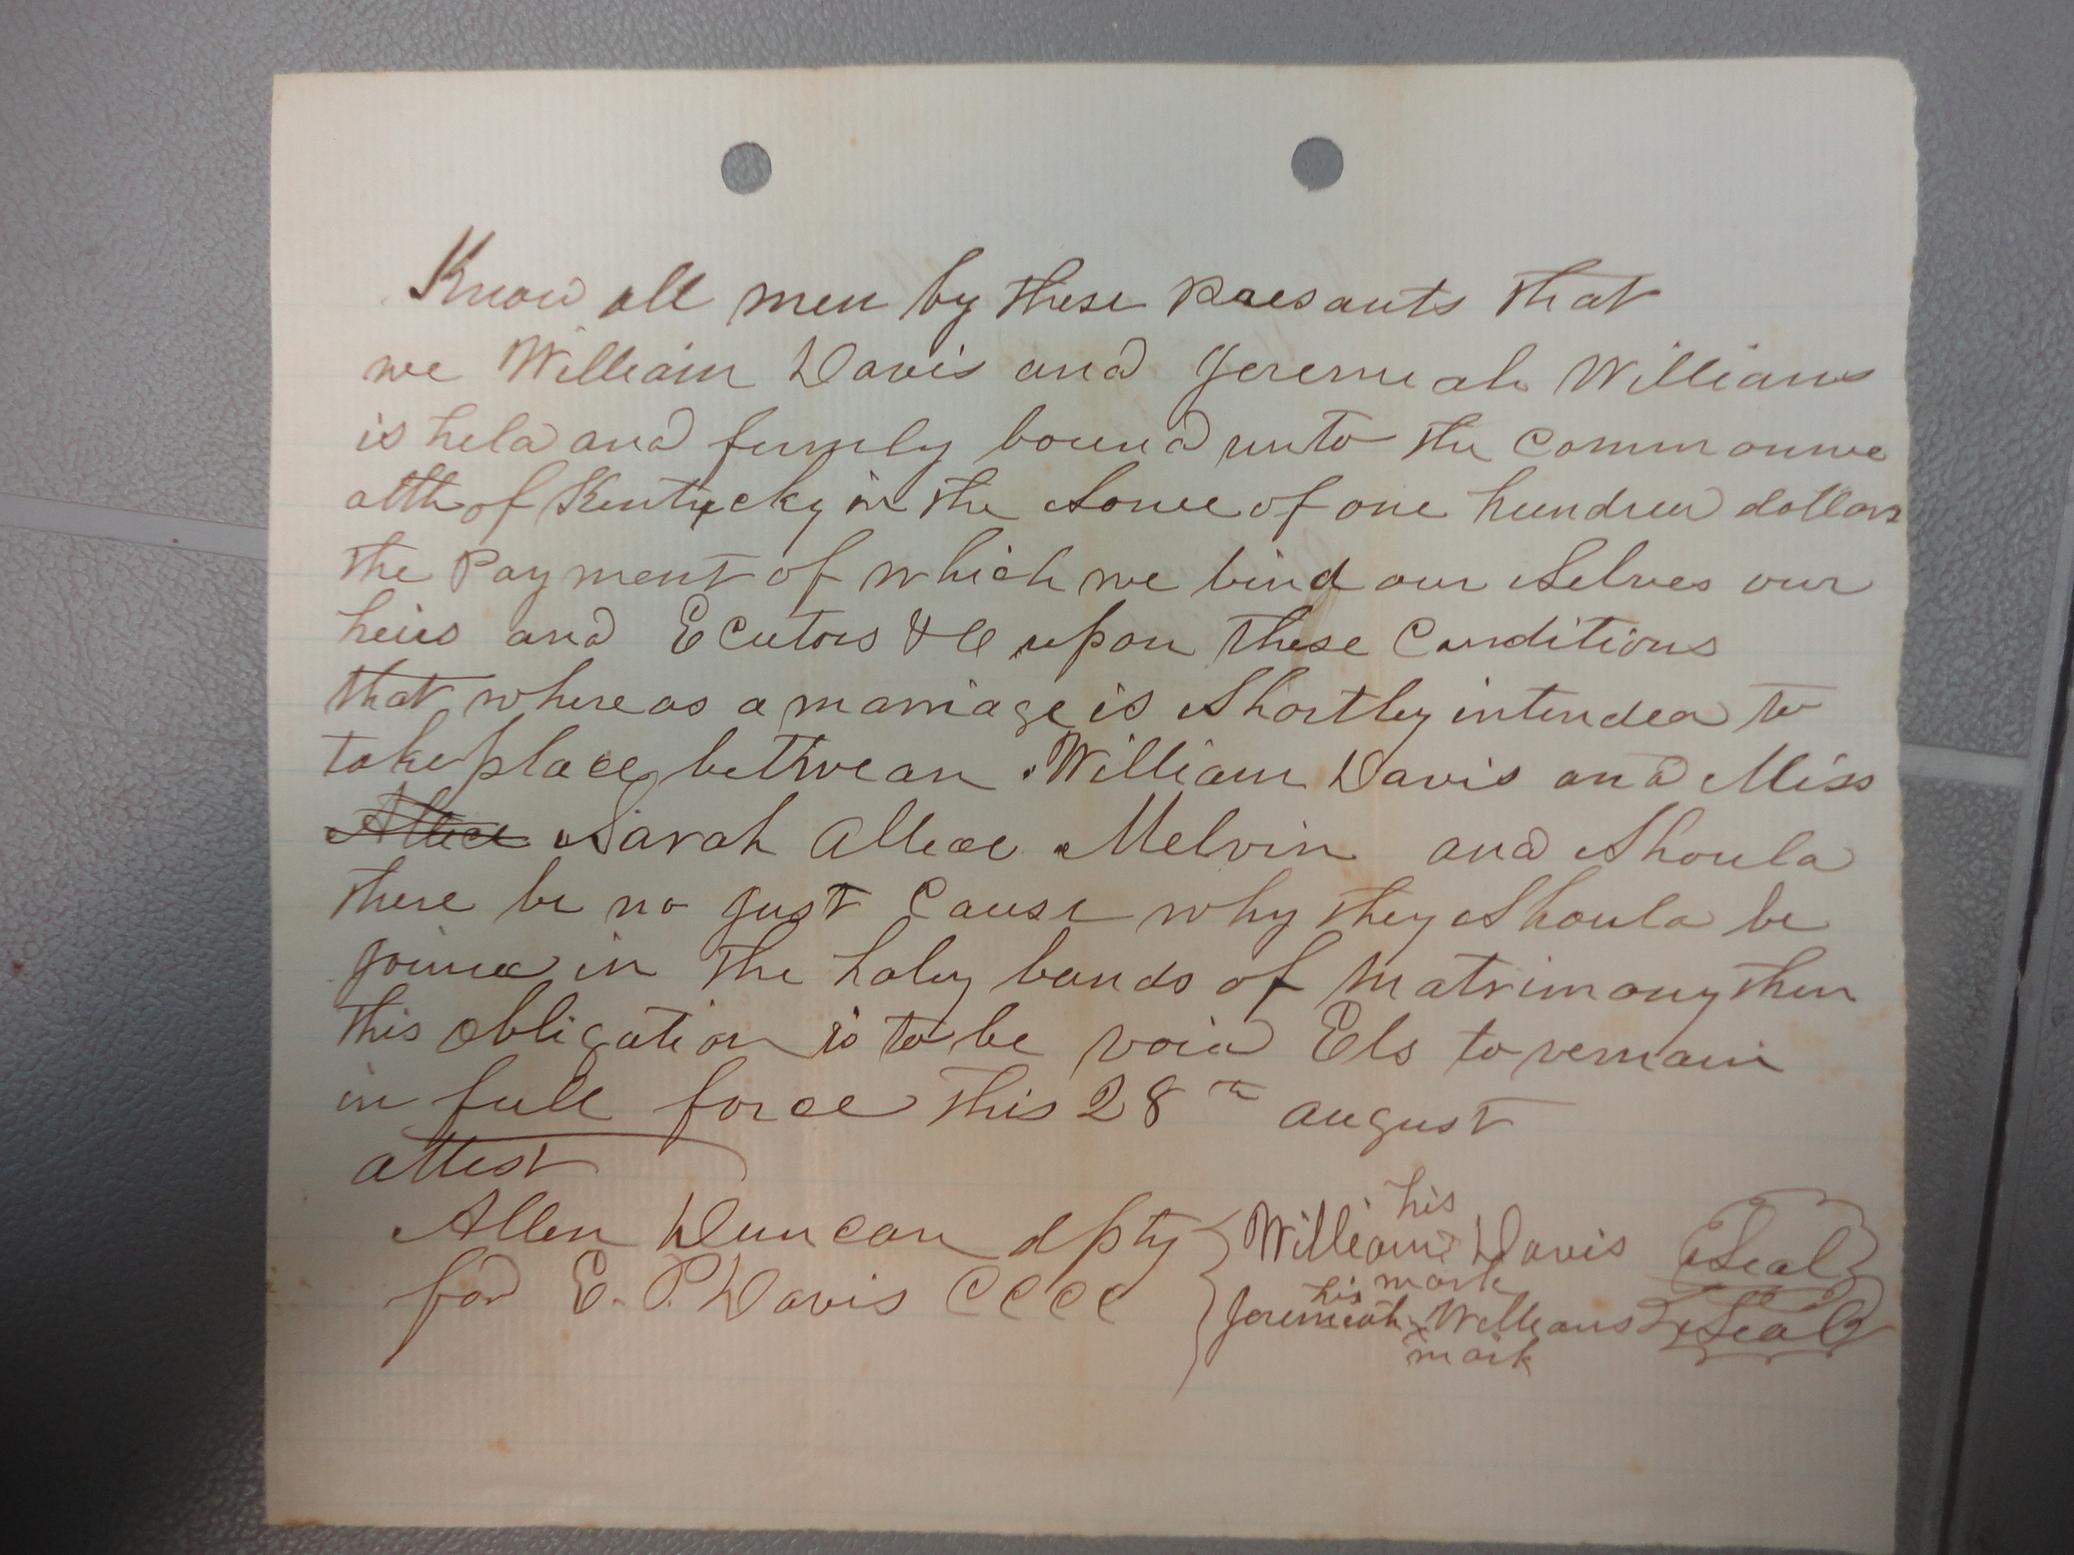 Know all men by these presants that
we William Davis and Jeremiah Williams
is held and firmly bound unto the Commonwe
alth of Kentucky in the Some of one hundred dollars
the Payment of which we bind our Selves our
heirs and Ecutors &c upon these Conditions
that whereas a marriage is Shortly intended to
take place betwean William Davis and Miss
Allice Sarah Allice Melvin and Should
there be no gust Cause why they Should be
joined in the holey bands of Matrimony then
this obligation is to be void Els to remain
in full force this 28th august
attest
Allen Duncan dpty
for E. P. Davis CCCC
his
William Davis Seal
mark
his
Jeremiah x Williams Seal
mark